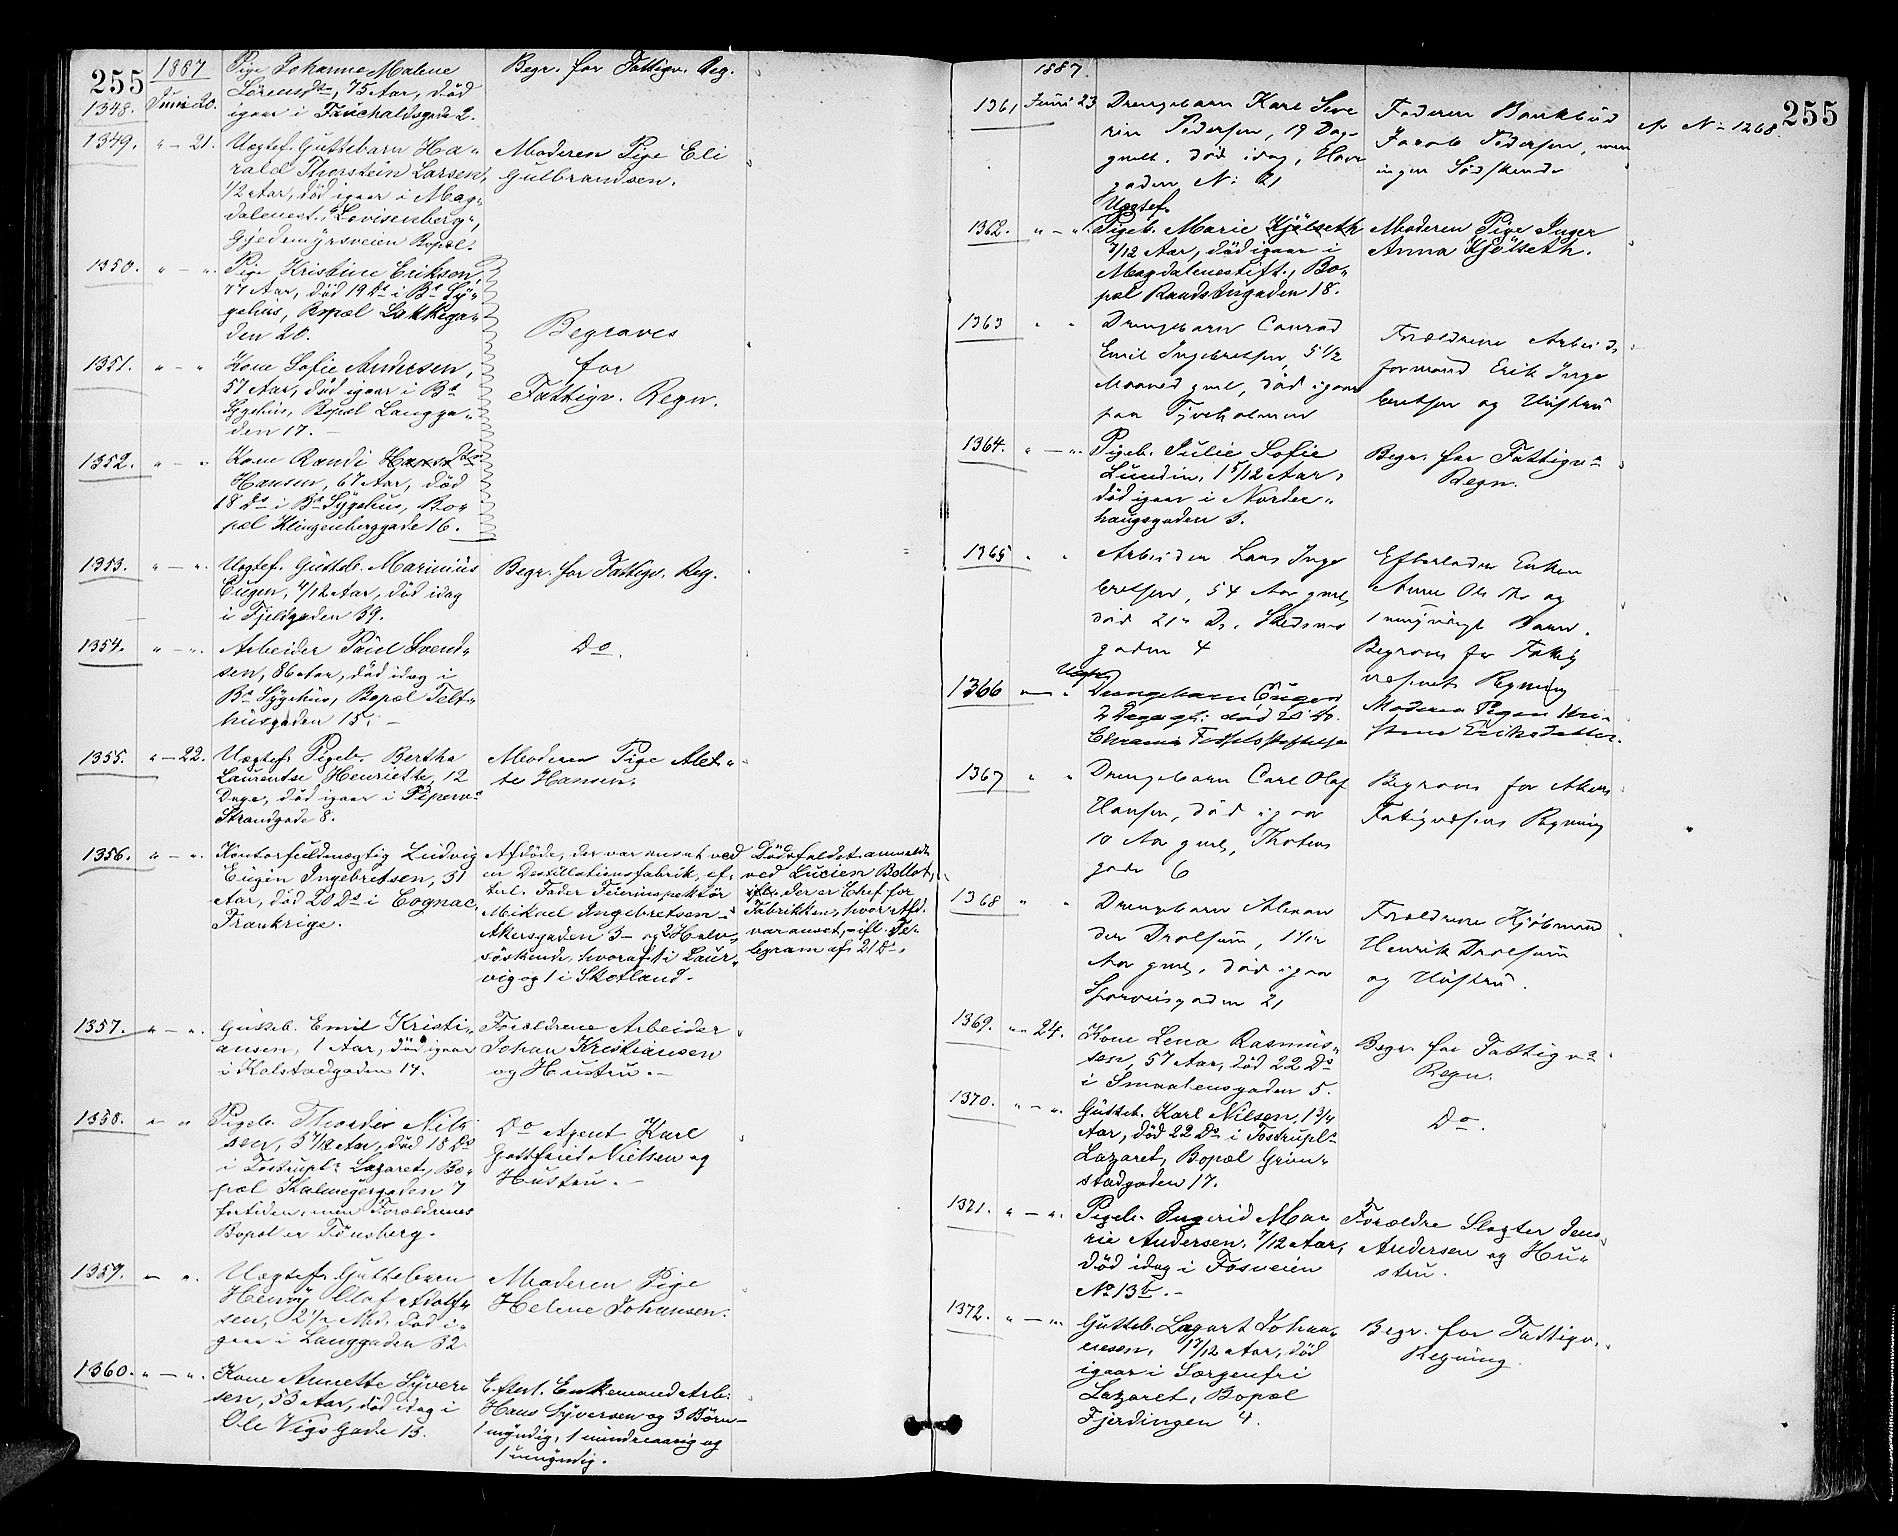 255
1887
1348. Juni 20. Pige Johanne Malene
Sörensdtr, 75 Aar, död
igaar i Fauchaldsgade 2.
Begr. for Fattigv. Reg.
1349. " - 21. Uægtef. Guttebarn Ha-
rald Thorstein Larsen,
1/2 Aar, död igaar i Mag-
dalenest. "Lovisenberg",
Gjedemyrsveien Bopæl.
Moderen Pige Eli
Gulbrandsen.
1350. " - " Pige Kristine Eriksen,
77 Aar, död 19 Ds i Bs Sy-
gehus, Bopæl Lakkega-
den 20.
1351. " - " Kone Sofie Andersen,
57 Aar, död igaar i Bs
Sygehus, Bopæl Langga-
den 17. -
1352. " - " Kone Randi Hansdtr
Hansen, 67 Aar, död
18 Ds i Bs Sygehus, Bo-
pæl Klingenberggade 16.
Begraves
for
Fattigv. Regn.
1353. " - " Uægtef. Gutteb. Marinius
Eugen, 4/12 Aar, död idag
i Fjeldgaden 39.
Begr. for Fattigv. Reg.
1354. " - " Arbeider Paul Svend-
sen, 86 Aar, död idag i
Bs Sygehus, Bopæl Telt-
husgaden 15. -
Do.
1355. " - 22. Uægtef. Pigeb. Bertha
Laurentse Henriette, 12
Dage, död igaar i Piperv.
Strandgade 8.
Moderen Pige Alet-
te Hansen.
1356. " - " Kontorfuldmægtig Ludvig
Eugin Ingebretsen, 31
Aar, död 20 Ds i Cognac,
Frankrige.
Afdöde, der var ansat ved
en Destillationsfabrik, ef-
terl. Fader Feierinspektör
Mikael Ingebretsen -
Akersgaden 3 - og 2 Halv-
söskende, hvoraf 1 i Laur-
vig og 1 i Skotland.
Dödsfaldet anmeldt
ved Lucien Bellot,
der er Chef for
Fabrikken, hvor Afd.
var ansat, - ifl. Te-
legram af 21 Ds.
1357. " - " Gutteb. Emil Kristi-
ansen, 1 Aar, död igaar
i Kolstadgaden 14.
Forældrene Arbeider
Johan Kristiansen
og Hustru. -
1358. " " Pigeb. Thordis Niel-
sen, 5 7/12 Aar, död 18 Ds
i Tostrupls Lazaret, Bo-
pæl Kalmeyergaden 7
fortiden, men Forældrenes
Bopæl er Tönsberg.
Do Agent Karl
Gottfried Nielsen og
Hustru. -
1359. " " Uægtef. Guttebarn
Henry Olaf Adolf-
sen, 2 1/2 Md. död i-
gaar i Langgaden 32.
Moderen Pige
Helene Johansen.
1360. " - " Kone Annette Syver-
sen, 53 Aar, död idag i
Ole Vigs Gade 13.
Efterl. Enkemand Arb.
Hans Syversen og 3 Börn -
1 myndig, 1 mindreaarig og
1 umyndig.
255
1887.
1361 Juni 23 Drengebarn Karl Seve
rin Pedersen, 19 Dage
gmlt. död idag,
gaden No 21
Faderen Bankbud
Jacob Pedersen, men
ingen Sødskende
cfr No 1268.
1362. " - " Uægtef.
Pigeb. Marie Kjölseth
7/12 Aar, död igaar i
Magdalenestift., Bo-
pæl Randsdisgaden 18.
Moderen Pige Inger
Anna Kjölseth.
1363 " " Drengebarn Conrad
Emil Ingebretsen, 5 1/2
Maaned gml, död igaar
paa Tyveholmen
Forældrene Arbeids
formand Erik Inge
bretsen og Hustru
1364. " - " Pigeb. Julie Sofie
Lundin, 1 5/12 Aar,
död igaar i Norder-
haugsgaden 3.
Begr. for Fattigvs
Regn.
1365 " " Arbeider Lars Inge
bretsen, 54 Aar gml,
död 21 Ds. Skedsmo
gaden 4
Efterlader Enken
Anne Olsdtr og
1 umyndigt Barn.
Begraves for Fattig
væsenets Regning
1366 " " Uægte
Drengebarn Eugen
2 Dage gl. död 20 ds.
Christiania Fødselsstiftelse
Moderen Pigen Kri-
stine Eriksdatter.
1367 " " Drengebarn Carl Olaf
Hansen, död igaar
10 Aar gml, Thotens
gade 6
Begraves for Akers
Fattigvæsens Regning
1368 " " Drengebarn Alexan
der Drolsum, 1 1/12
Aar gml, död igaar
Sporveisgaden 21
Forældrene Kjöbmand
Henrik Drolsum
og Hustru.
1369. " " 24. Kone Lena Rasmus-
sen, 57 Aar, död 22 Ds
i Smaalensgaden 5.
Begr. for Fattigvs
Regn.
1370. " - " Gutteb. Karl Nilsen, 1 3/4
Aar, död 22 Ds i Tostrupls
Lazaret, Bopæl Grön-
stadgaden 17.
Do.
1371. " - " Pigeb. Ingerid Ma-
rie Andersen, 7/12 Aar,
död idag i Fosveien
No 13b. -
Forældre Slagter Jens
Andersen og Hu-
stru.
1372. " - " Gutteb. Lagart Johan-
nesen, 1 7/12 Aar, död
igaar i Sorgenfri
Lazaret, Bopæl
Fjerdingen 4.
Begr. for Fattigv.
Regning.